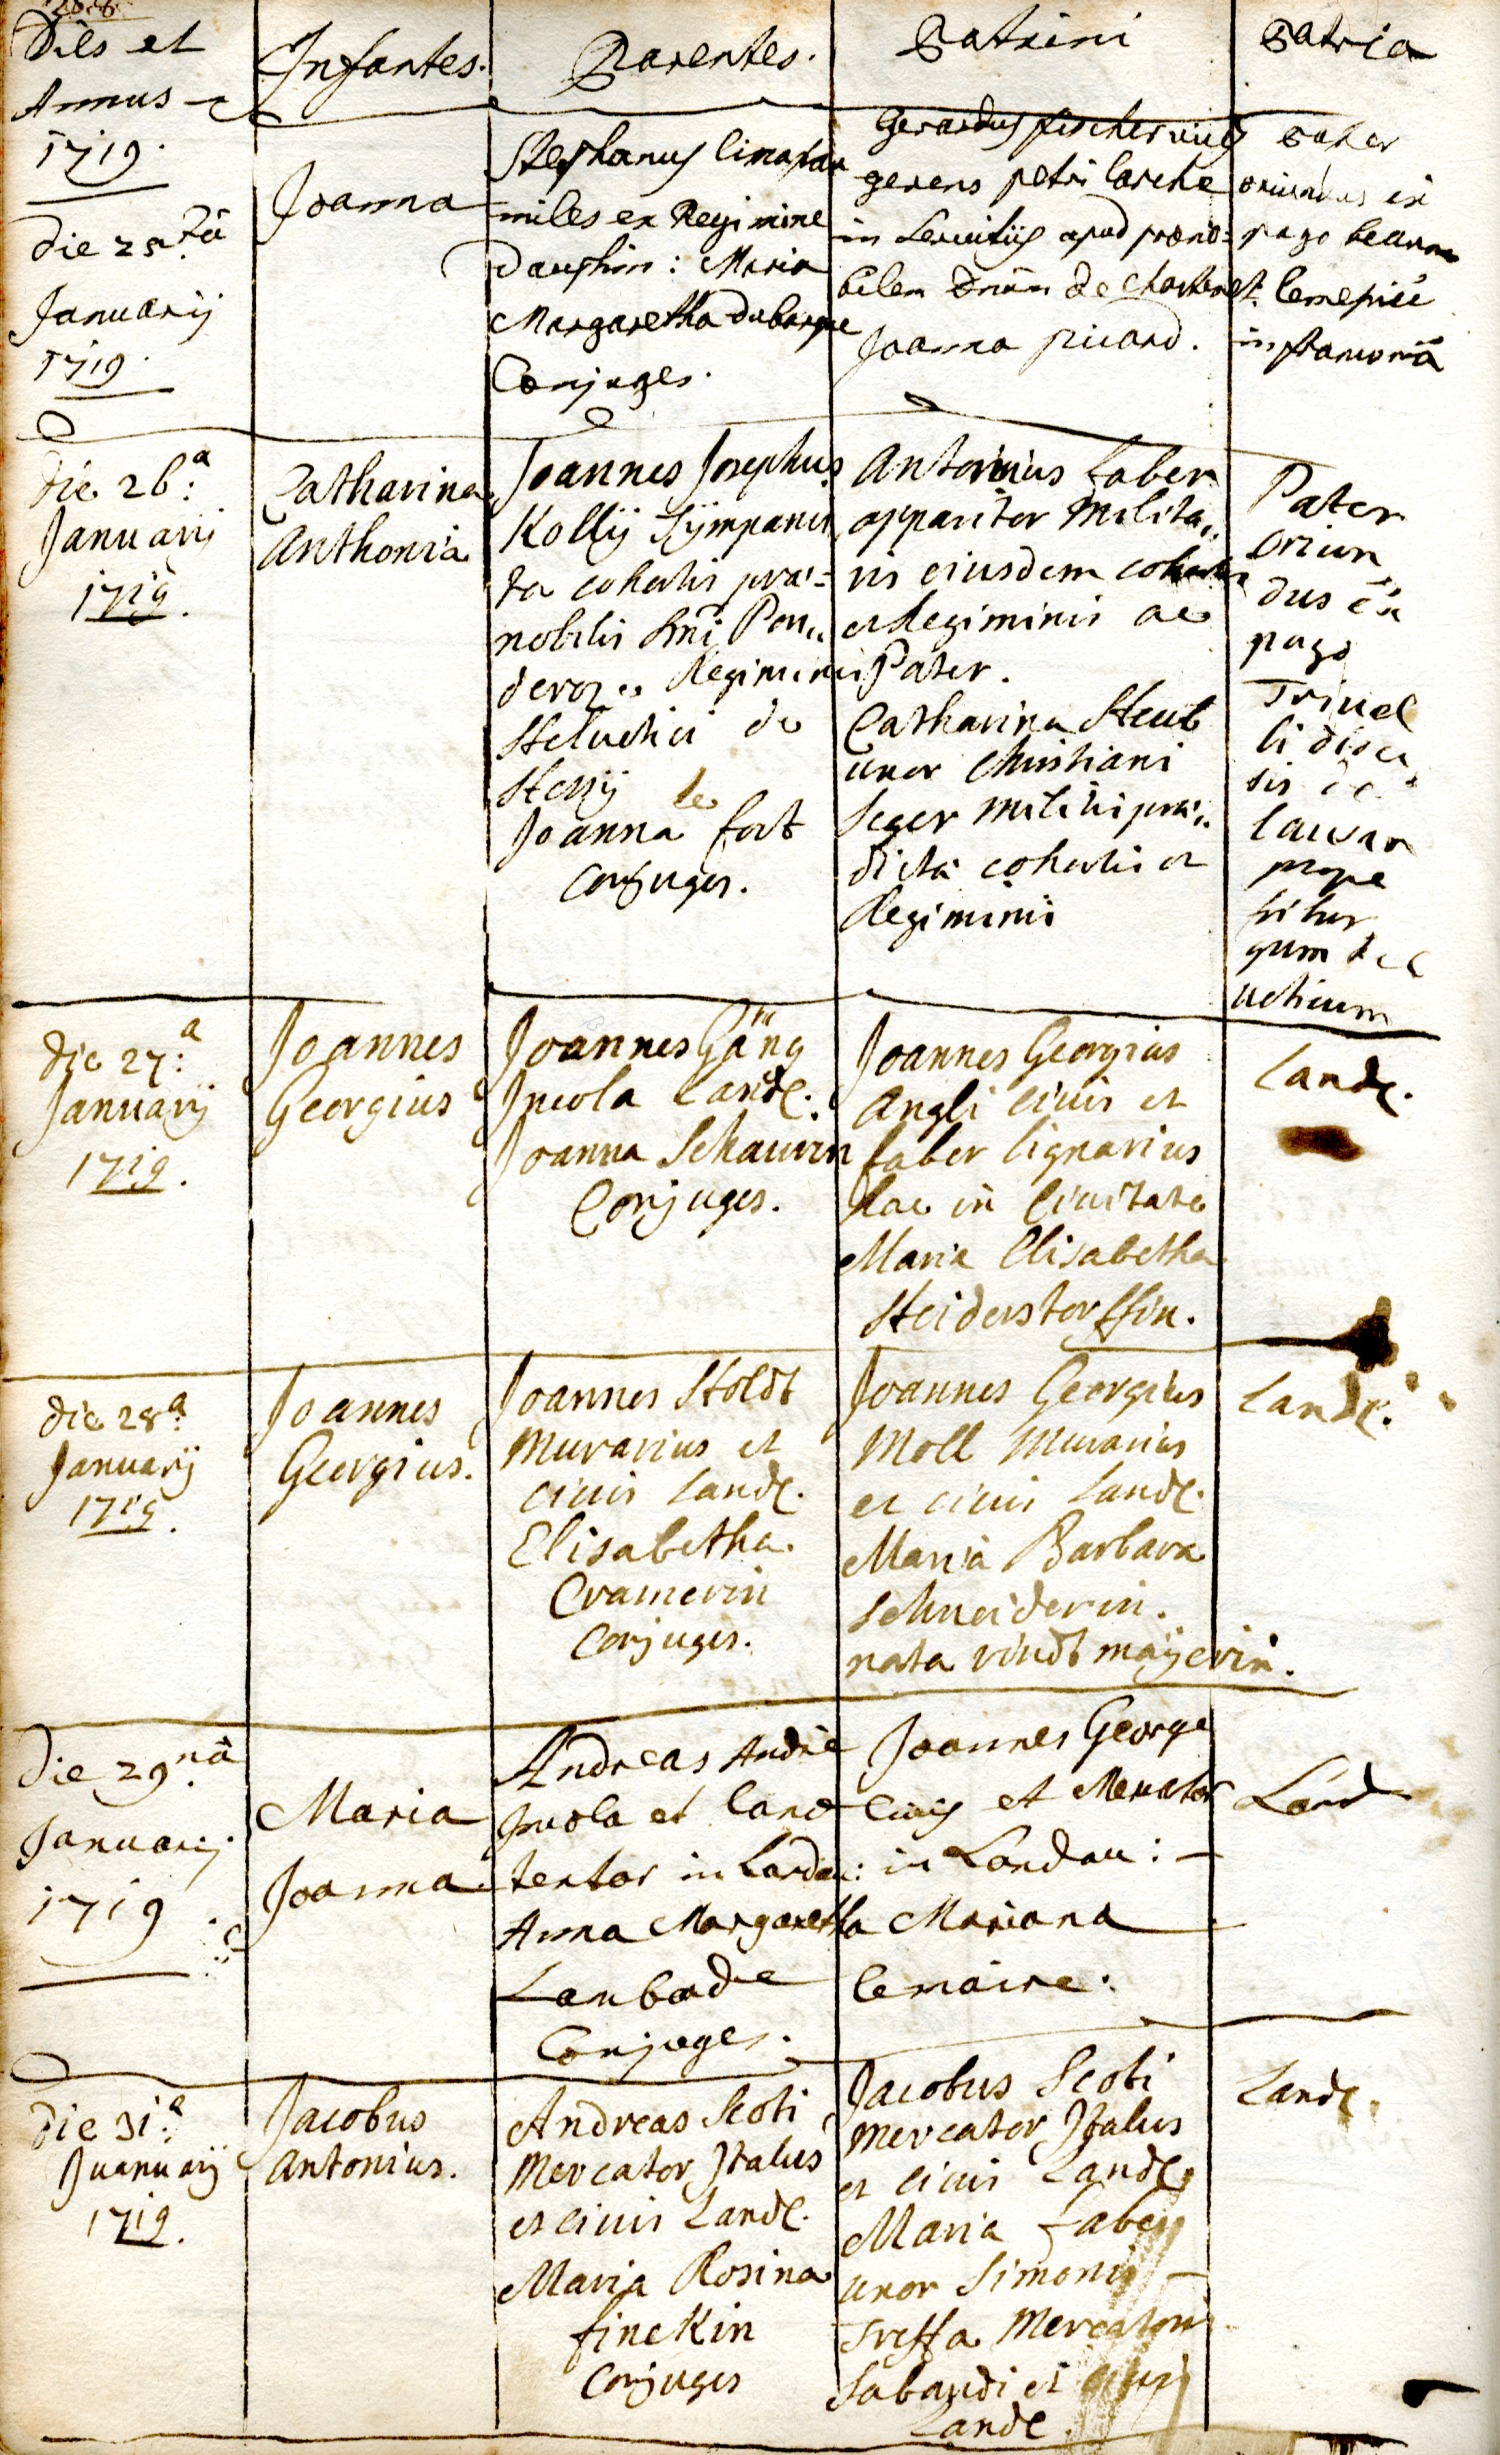 Dies et
Annus
Infantes.
Parentes.
Patrini
Patria
1719.
die 25ta
Januarij
1719.
Joanna
Stephanus
miles ex Regimine
Dauphin: Maria
Margaretha dubarque
Conjuges.
Gerardus fischer
gerens petri larche
in servitijs apud præno=
bilem Dnum de
Joanna picard.
Pater
oriundus ex
pago
in
die 26:a
Januarij
1719.
Catharina
Anthonia
Joannes Josephus
Kollÿ Tÿmpanis
ta cohortis præ=
nobilis Dni Pon„
deroz „ Regiminis
Helvetici de
Hessÿ
Joanna le fort
Conjuges.
Antonius faber
apparitor Milita„
ris eiusdem cohortis
et Regiminis ac
Pater.
Catharina Heub
uxor Christiani
Seger Militis præ„
dictæ cohortis et
Regiminis
Pater
Oriun
dus ex
pago
Trivel
li
sis de
lausan
prope
fribur
gum Hel
veticum
die 27:a
Januarij
1719.
Joannes
Georgius
Joannes Gäng
Incola Landc.
Joanna Schaurin
Conjuges.
Joannes Georgius
Angli civis et
faber lignarius
hac in Civitate
Maria Elisabetha
Heiderstorffin.
Landc.
die 28a
Januarij
1719.
Joannes
Georgius.
Joannes Holdt
Murarius et
civis Landc.
Elisabetha
Cramerin
Conjuges.
Joannes Georgius
Moll Murarius
et civis Landc.
Maria Barbara
Schneiderin.
nata vindtmaÿerin.
Landc.
die 29na
Januarij
1719
Maria
Joanna
Andreas André
Incola et
tentor in Landau:
Anna Margaretha
Laubade
Conjuges.
Joannes George
Civis et Mercator
in Landau:
Mariana
lemaire.
Land
die 31:a
Juanuarij
1719.
Jacobus
Antonius.
Andreas Scoti
Mercator Italus
et civis Landc.
Maria Rosina
finckin
Conjuges
Jacobus Scoti
Mercator Italus
et civis Landc.
Maria
uxor Simonis
Treffa Mercatoris
Sabaudi et civis
Landc.
Landc.